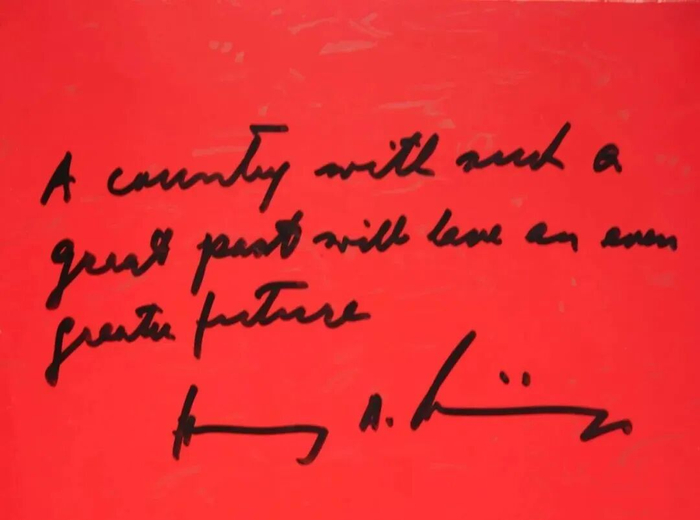 A country with such a
great past will have an even
greater future
Henry A.